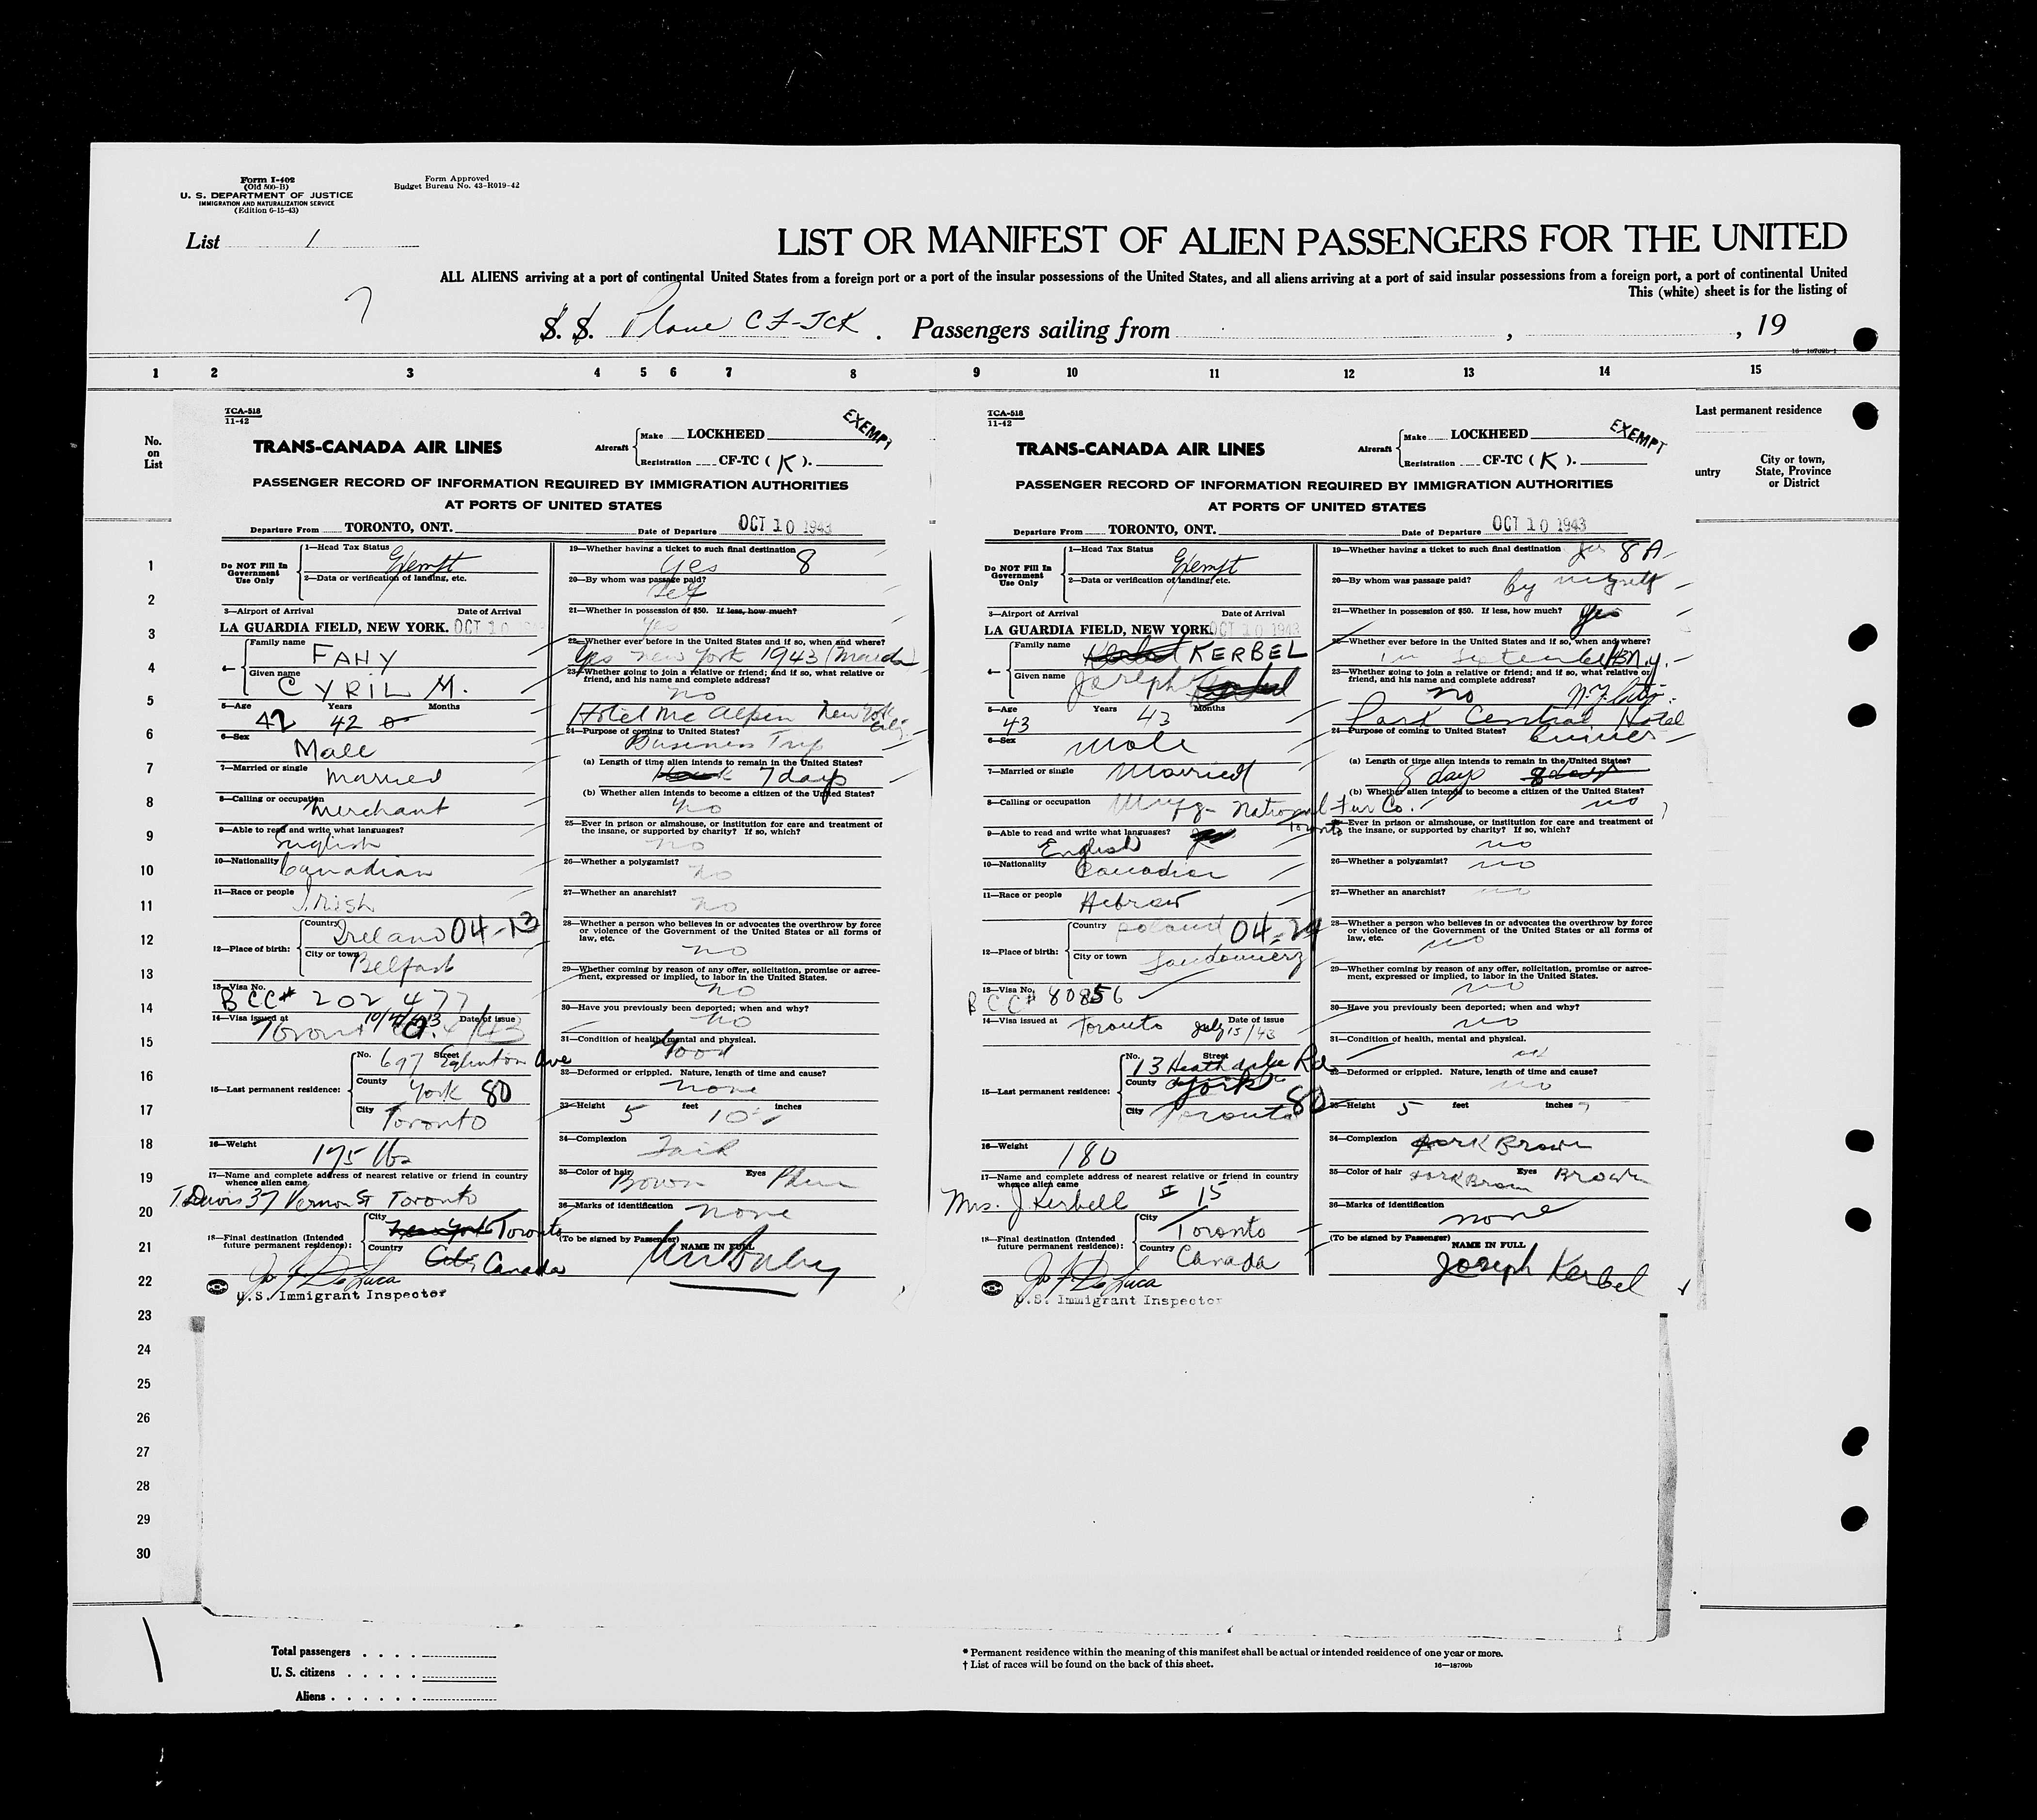 Form I-402
(Old 500-B)
U. S. DEPARTMENT OF JUSTICE
IMMIGRATION AND NATURALIZATION SERVICE
(Edition 6-15-43)
Form Approved
Budget Bureau No. 43-R019-42
List 1
LIST OR MANIFEST OF ALIEN PASSENGERS FOR THE UNITED
ALL ALIENS arriving at a port of continental United States from a foreign port or a port of the insular possessions of the United States, and all aliens arriving at a port of said insular possessions from a foreign port, a port of continental United
This (white) sheet is for the listing of
S. S. Plane CF-TCK . Passengers sailing from , , 19
1 2 3 4 5 6 7 8 9 10 11 12 13 14 15
No.
on
List
Last permanent residence
untry
City or town,
State, Province
or District
TCA-518
11-42
TRANS-CANADA AIR LINES
Aircraft Make LOCKHEED
Registration CF-TC ( K ).
EXEMPT
PASSENGER RECORD OF INFORMATION REQUIRED BY IMMIGRATION AUTHORITIES
AT PORTS OF UNITED STATES
Departure From TORONTO, ONT. Date of Departure OCT 10 1943
Do NOT Fill In
Government
Use Only
1—Head Tax Status Exempt
2—Data or verification of landing, etc.
3—Airport of Arrival Date of Arrival
LA GUARDIA FIELD, NEW YORK. OCT 10
4— Family name FAHY
Given name CYRIL M.
5—Age Years Months
42 42 0
6—Sex Male
7—Married or single Married
8—Calling or occupation Merchant
9—Able to read and write what languages?
English
10—Nationality Canadian
11—Race or people Irish
12—Place of birth: Country Ireland 04-13
City or town Belfast
13—Visa No.
BCC# 202477
14—Visa issued at Date of issue
Toronto 10/4/43
15—Last permanent residence: No. 697 Street Eglinton Ave
County York 80
City Toronto
16—Weight 175 lbs
17—Name and complete address of nearest relative or friend in country
whence alien came
T. Davis 37 Vernon St Toronto
18—Final destination (Intended
future permanent residence):
City New York Toronto
Country City Canada
Jos F De Luca
U.S. Immigrant Inspector
19—Whether having a ticket to such final destination
Yes 8
20—By whom was passage paid?
Self
21—Whether in possession of $50. If less, how much?
Yes
22—Whether ever before in the United States and if so, when and where?
Yes New York 1943
23—Whether going to join a relative or friend; and if so, what relative or
friend, and his name and complete address?
No
Hotel Mc Alpen New York City
24—Purpose of coming to United States?
Business Trip
(a) Length of time alien intends to remain in the United States?
7 days
(b) Whether alien intends to become a citizen of the United States?
No
25—Ever in prison or almshouse, or institution for care and treatment of
the insane, or supported by charity? If so, which?
No
26—Whether a polygamist?
No
27—Whether an anarchist?
No
28—Whether a person who believes in or advocates the overthrow by force
or violence of the Government of the United States or all forms of
law, etc.
No
29—Whether coming by reason of any offer, solicitation, promise or agree-
ment, expressed or implied, to labor in the United States.
No
30—Have you previously been deported; when and why?
No
31—Condition of health, mental and physical.
Good
32—Deformed or crippled. Nature, length of time and cause?
None
33—Height 5 feet 10 inches
34—Complexion Fair
35—Color of hair Brown Eyes
36—Marks of identification None
(To be signed by Passenger) NAME IN FULL
TCA-518
11-42
TRANS-CANADA AIR LINES
Aircraft Make LOCKHEED
Registration CF-TC ( K ).
EXEMPT
PASSENGER RECORD OF INFORMATION REQUIRED BY IMMIGRATION AUTHORITIES
AT PORTS OF UNITED STATES
Departure From TORONTO, ONT. Date of Departure OCT 10 1943
Do NOT Fill In
Government
Use Only
1—Head Tax Status Exempt
2—Data or verification of landing, etc.
3—Airport of Arrival Date of Arrival
LA GUARDIA FIELD, NEW YORK. OCT 10 1943
4— Family name Kerbel KERBEL
Given name Joseph
5—Age Years Months
43 43
6—Sex Male
7—Married or single Married
8—Calling or occupation National Fur Co. Toronto
9—Able to read and write what languages?
English
10—Nationality Canadian
11—Race or people Hebrew
12—Place of birth: Country Poland 04-24
City or town Sandomierz
13—Visa No.
BCC# 80856
14—Visa issued at Date of issue
Toronto July 15/43
15—Last permanent residence: No. 13 Street Heathdale Rd.
County York
City Toronto 80
16—Weight 180
17—Name and complete address of nearest relative or friend in country
whence alien came
Mrs. J. Kerbell # 15
18—Final destination (Intended
future permanent residence):
City Toronto
Country Canada
Jos F De Luca
U.S. Immigrant Inspector
19—Whether having a ticket to such final destination yes 8A
20—By whom was passage paid? by myself
21—Whether in possession of $50. If less, how much? yes
22—Whether ever before in the United States and if so, when and where?
in September/43 N.Y.
23—Whether going to join a relative or friend; and if so, what relative or
friend, and his name and complete address?
no N.Y. City
Park Central Hotel
24—Purpose of coming to United States?
(a) Length of time alien intends to remain in the United States?
8 days 8 days
(b) Whether alien intends to become a citizen of the United States?
no
25—Ever in prison or almshouse, or institution for care and treatment of
the insane, or supported by charity? If so, which?
no
26—Whether a polygamist? no
27—Whether an anarchist? no
28—Whether a person who believes in or advocates the overthrow by force
or violence of the Government of the United States or all forms of
law, etc. no
29—Whether coming by reason of any offer, solicitation, promise or agree-
ment, expressed or implied, to labor in the United States.
no
30—Have you previously been deported; when and why?
no
31—Condition of health, mental and physical.
32—Deformed or crippled. Nature, length of time and cause?
no
33—Height 5 feet inches 7
34—Complexion Dark Brown
35—Color of hair Dark Brown Eyes Brown
36—Marks of identification none
(To be signed by Passenger) NAME IN FULL
Joseph Kerbel
1
2
3
4
5
6
7
8
9
10
11
12
13
14
15
16
17
18
19
20
21
22
23
24
25
26
27
28
29
30
Total passengers
U. S. citizens
Aliens
* Permanent residence within the meaning of this manifest shall be actual or intended residence of one year or more.
† List of races will be found on the back of this sheet.
16—18709b